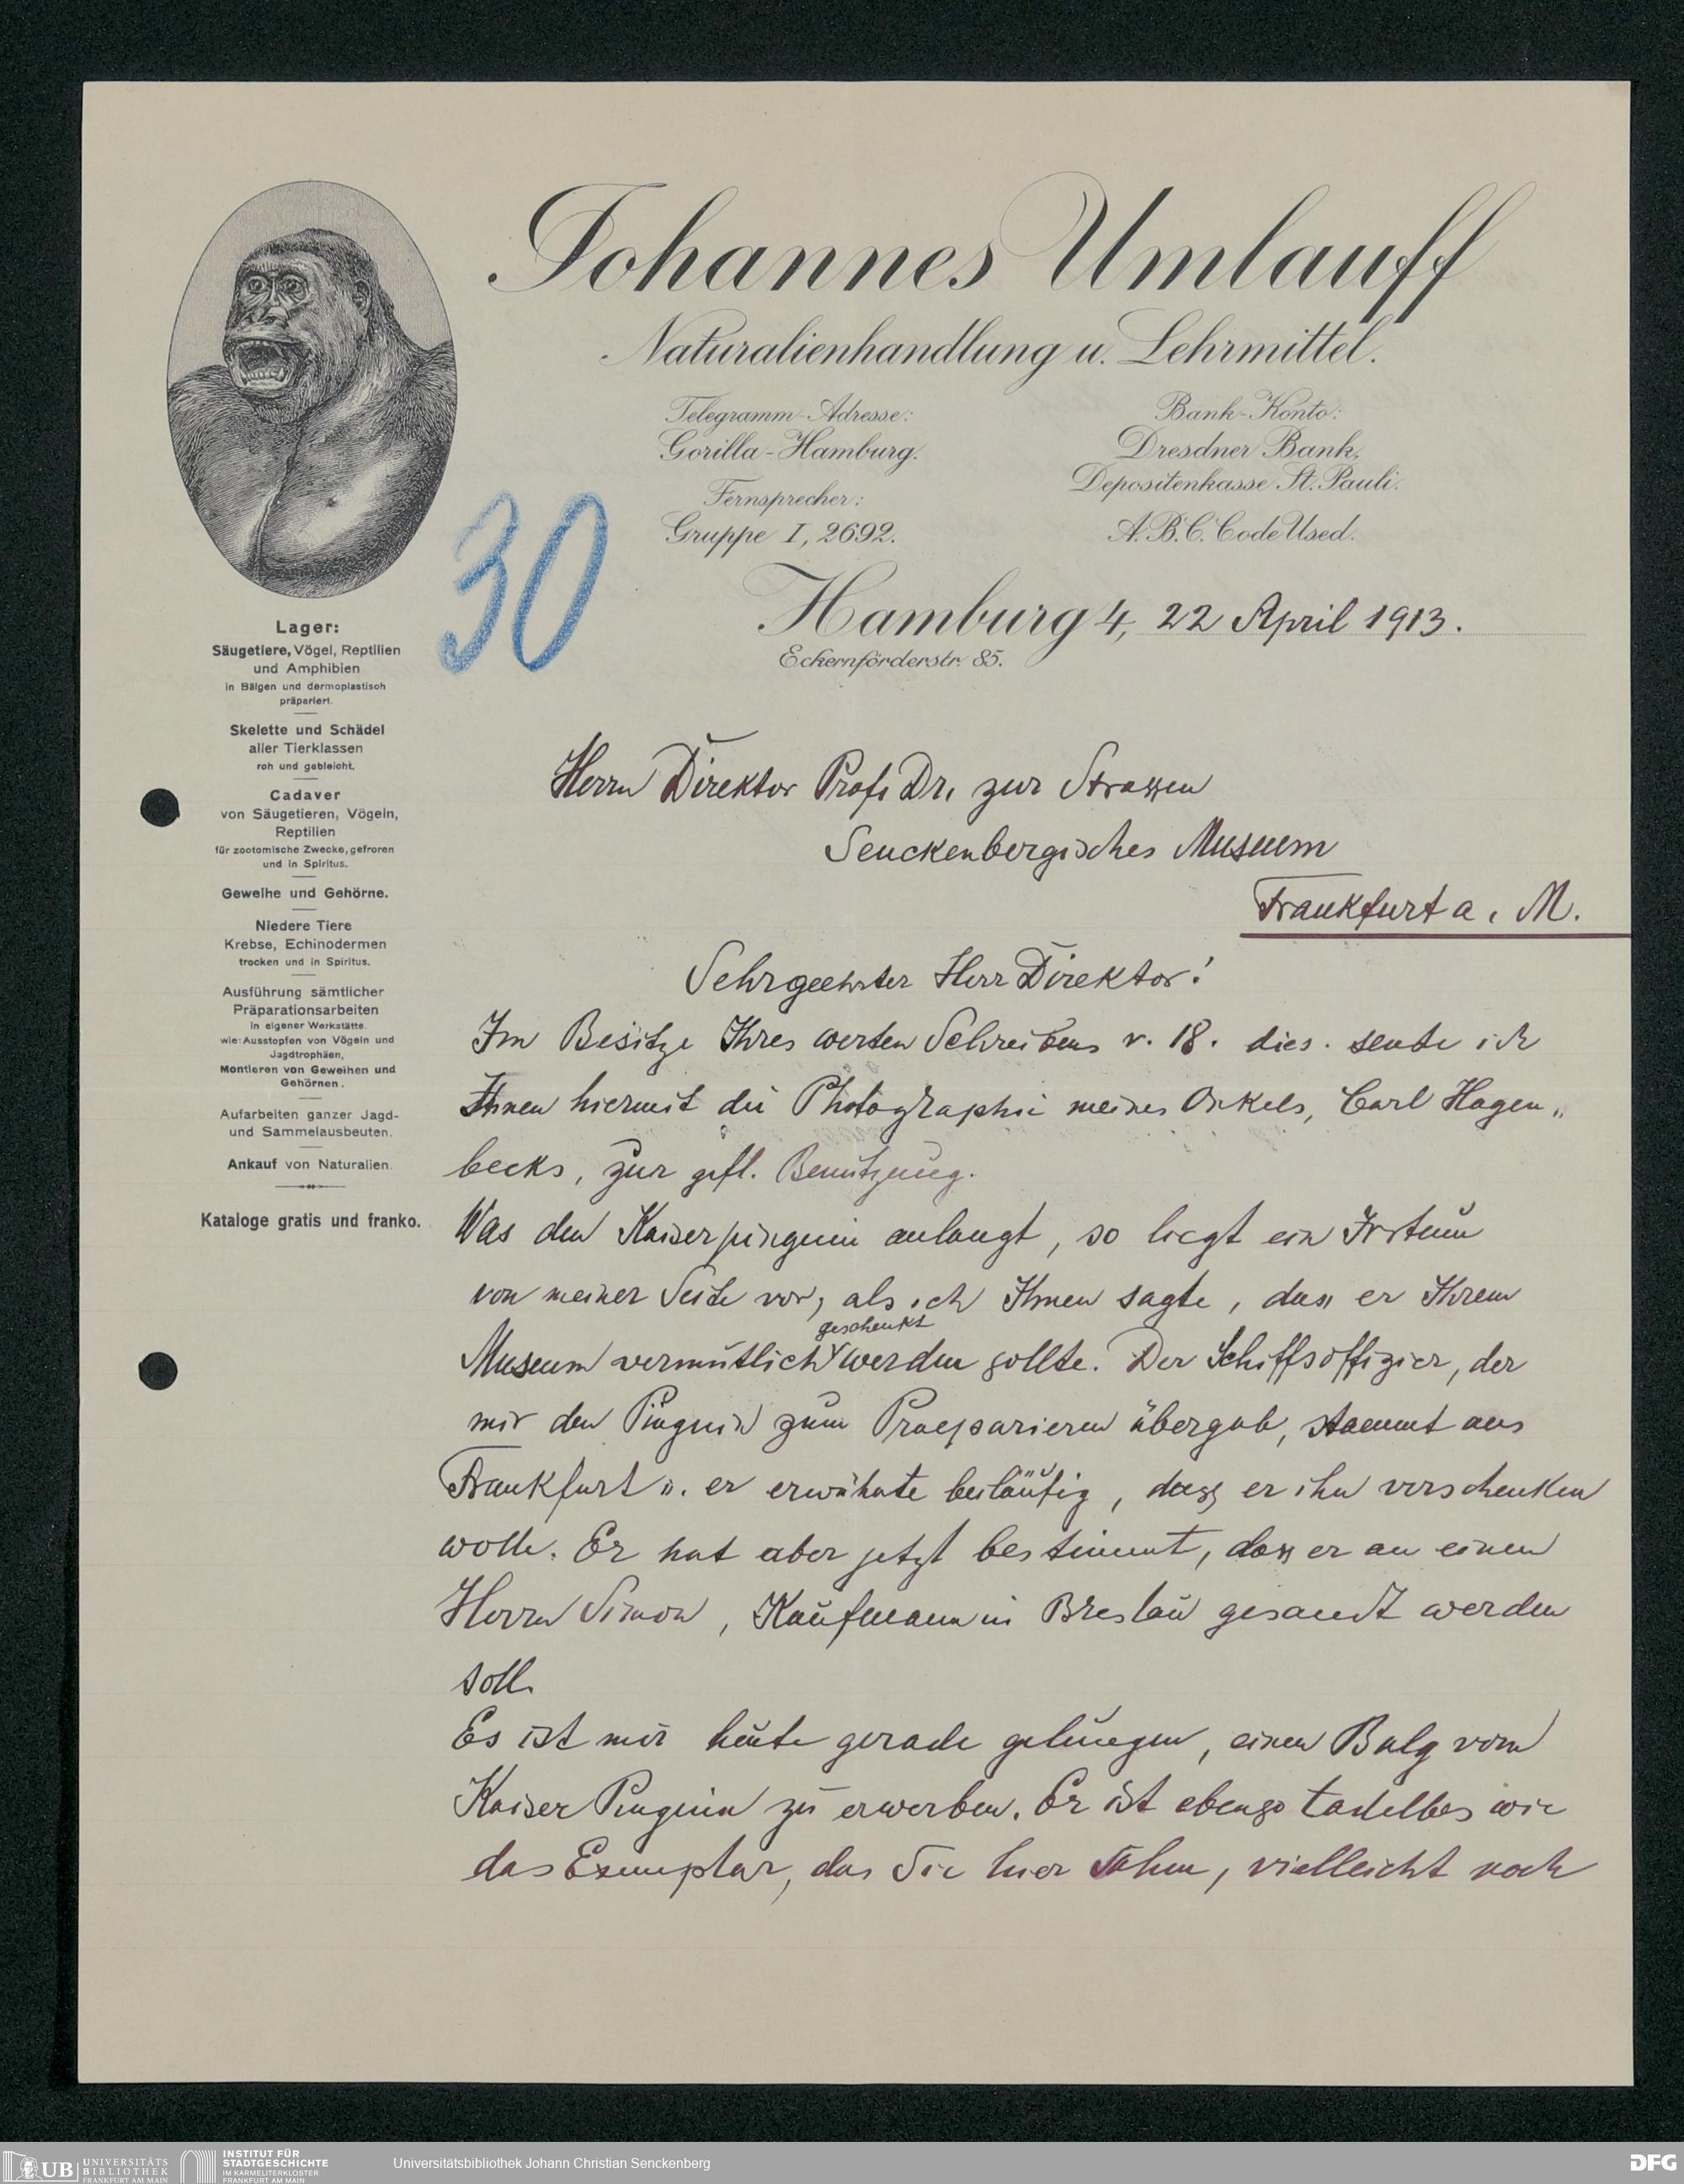 Johannes Umlauff
Naturalienhandlung u. Lehrmittel.
Telegramm-Adresse:
Gorilla-Hamburg.
Fernsprecher:
Gruppe I, 2692.
Bank-Konto:
Dresdner Bank,
Depositenkasse St. Pauli.
A.B.C. Code Used.
30
Hamburg 4, 22 April 1913.
Eckernförderstr. 85.
Lager:
Säugetiere, Vögel, Reptilien
und Amphibien
in Bälgen und dermoplastisch
präpariert.
Skelette und Schädel
aller Tierklassen
roh und gebleicht.
Cadaver
von Säugetieren, Vögeln,
Reptilien
für zootomische Zwecke, gefroren
und in Spiritus.
Geweihe und Gehörne.
Niedere Tiere
Krebse, Echinodermen
trocken und in Spiritus.
Ausführung sämtlicher
Präparationsarbeiten
in eigener Werkstätte.
wie: Ausstopfen von Vögeln und
Jagdtrophäen,
Montieren von Geweihen und
Gehörnen.
Aufarbeiten ganzer Jagd-
und Sammelausbeuten.
Ankauf von Naturalien.
Kataloge gratis und franko.
Herrn Direktor Prof. Dr. zur Strassen
Senckenbergisches Museum
Frankfurt a. M.
Sehrgeehrter Herr Direktor!
Im Besitze Ihres werten Schreibens v. 18. dies. sende ich
Ihnen hiermit die Photographie meines Onkels, Carl Hagen„
becks, zur gefl. Benutzung.
Was den Kaiserpinguin anlangt, so liegt ein Irrtum
von meiner Seite vor, als ich Ihnen sagte, dass er Ihrem
geschenkt
Museum vermutlich werden sollte. Der Schiffsoffizier, der
mir den Pinguin zum Praeparieren übergab, stammt aus
Frankfurt u. er erwähnte beiläufig, dass er ihn verschenken
wolle. Er hat aber jetzt bestimmt, dass er an einen
Herrn Simon, Kaufmann in Breslau gesandt werden
soll.
Es ist mir heute gerade gelungen, einen Balg vom
Kaiser Pinguin zu erwerben. Er ist ebenso tadellos wie
das Exemplar, das Sie hier sahen, vielleicht noch
UB UNIVERSITÄTS
BIBLIOTHEK
FRANKFURT AM MAIN
INSTITUT FÜR
STADTGESCHICHTE
IM KARMELITERKLOSTER
FRANKFURT AM MAIN
Universitätsbibliothek Johann Christian Senckenberg
DFG